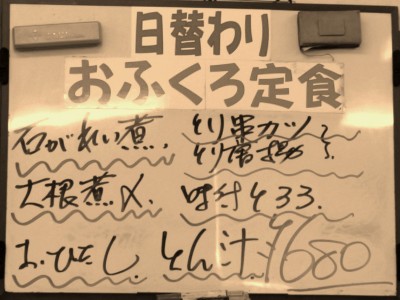 日替わり
おふくろ定食
石がれい煮、とり串カツ
とり唐揚
大根煮〆、味付そ33、
おひたし、とん汁 ¥680